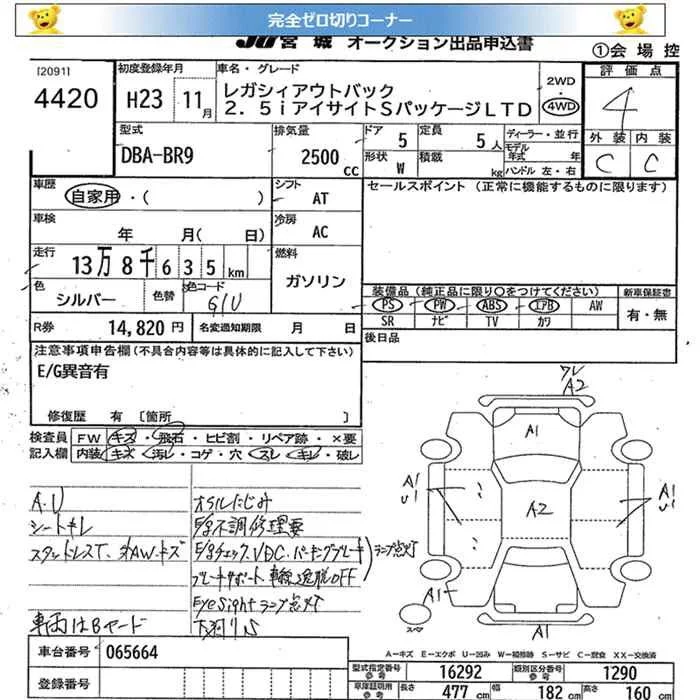 完全ゼロ切りコーナー
JU宮城 オークション出品申込書
①会場控
[2091]
4420
初度登録年月
H23 11月
車名・グレード
レガシィアウトバック
2.5iアイサイトSパッケージLTD
2WD
・
4WD
評価点
4
外装 内装
C C
型式
DBA-BR9
排気量
2500
CC
ドア 5
定員 5人
形状 W
積載 kg
ディーラー・並行
モデル年式 年
ハンドル 左・右
車歴
自家用・( )
シフト
AT
セールスポイント(正常に機能するものに限ります)
車検
年 月( 日)
冷房
AC
走行
13万8千635km
燃料
ガソリン
色
シルバー
色替
色コード
G1U
装備品(純正品に限り○をつけてください)
PS PW ABS エアB AW
SR ナビ TV カワ
新車保証書
有・無
R券 14,820円
名変通知期限 月 日
後日品
注意事項申告欄(不具合内容等は具体的に記入して下さい)
E/G異音有
修復歴 有 [箇所 ]
検査員記入欄
FW キズ・飛石・ヒビ割・リペア跡・×要
内装 キズ・汚レ・コゲ・穴・スレ・キレ・破レ
A.U
シートキレ
オイルにじみ
E/g不調修理要
E/gチェック、VDC、パーキングブレーキ
ランプ点灯
EyeSightランプ点灯
下廻りS
車両はBヤード
A2
A1
A2
A1
U1
A1
U1
A1
A1
スペア
A-キズ E-エクボ U-凹み W-補修跡 S-サビ C-腐食 XX-交換済
車台番号 065664
登録番号
型式指定番号 参考 16292
類別区分番号 参考 1290
車庫証明用 参考 長さ 477 cm 幅 182 cm 高さ 160 cm